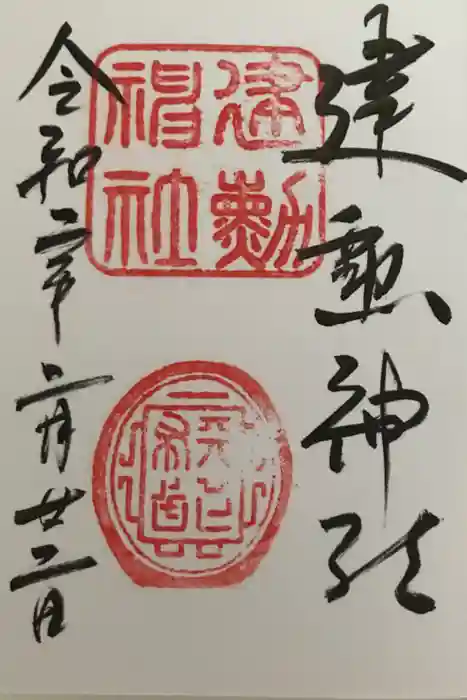 建勲神社
建勲
神社
令和二年二月廿二日